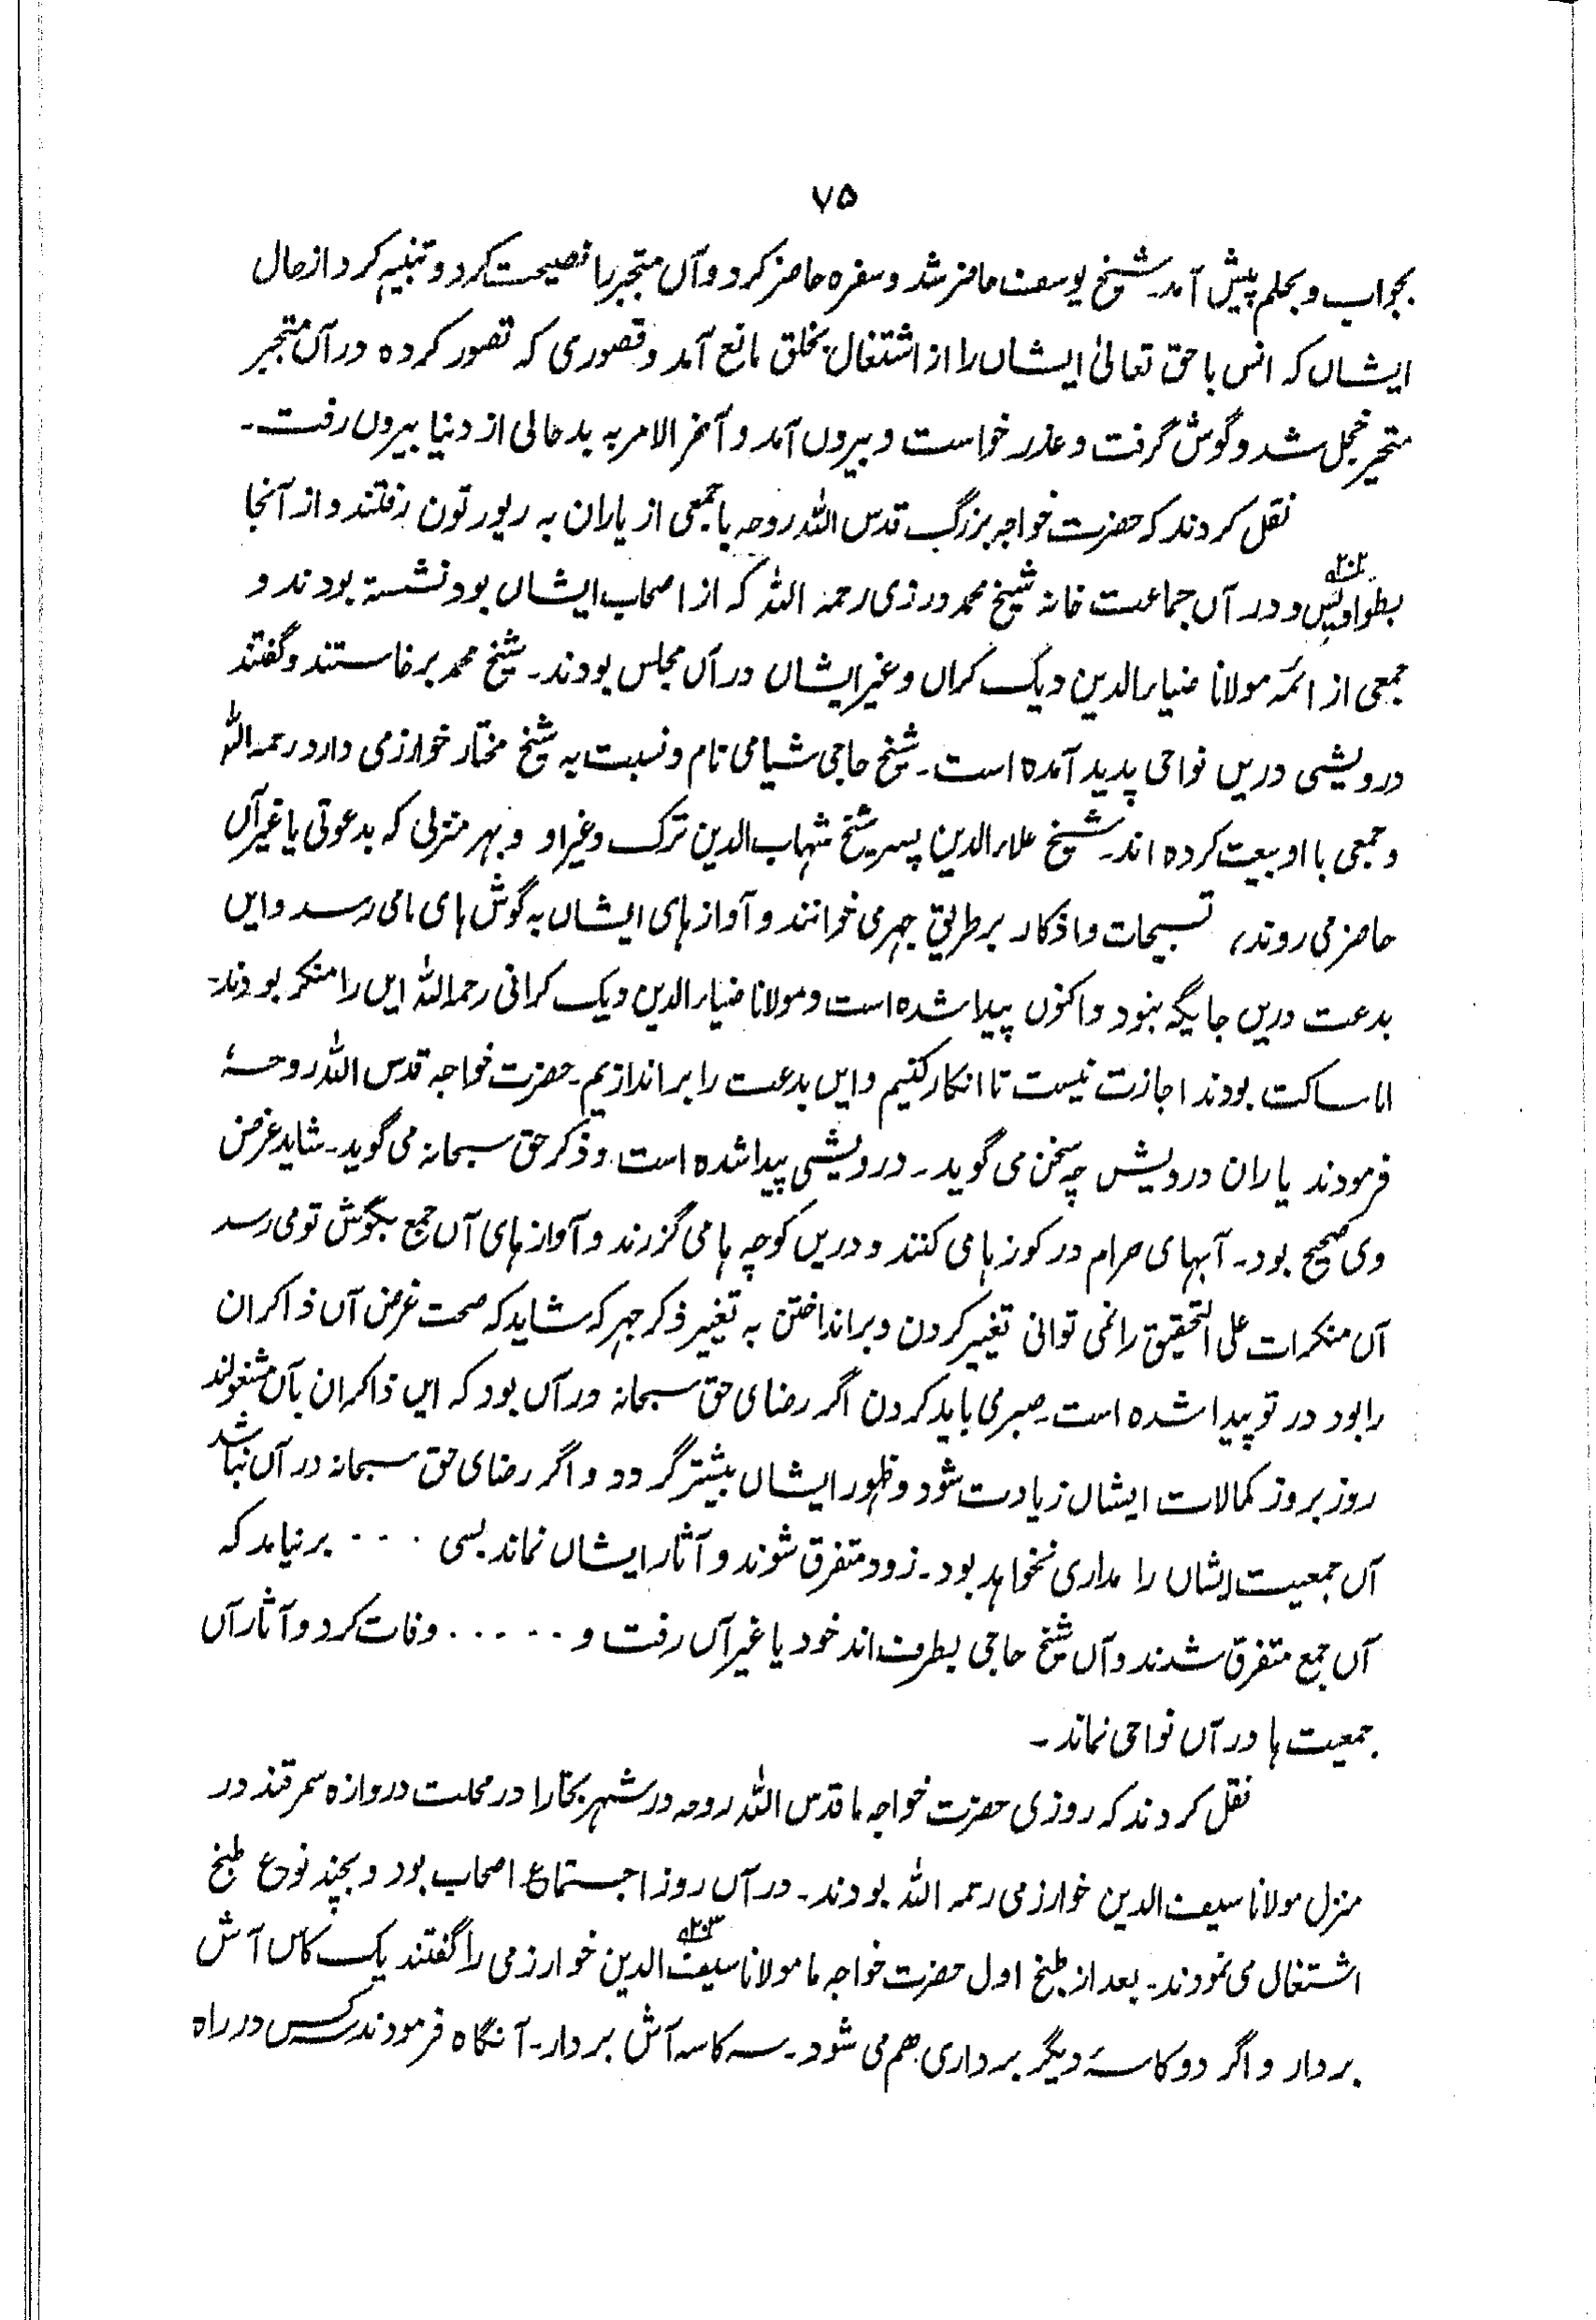 ۷۵
بجواب و بحلم پیش آمد۔ شیخ یوسف حاضر شد و سفره حاضر کرد و آں متجبر را نصیحت کرد و تنبیہ کرد از حال
ایشاں کہ انس با حق تعالیٰ ایشاں را از اشتغال بخلق مانع آمد و قصوری کہ تصور کرده در آں متجبر
متحیر خجل شد و گوش گرفت و عذر خواست و بیروں آمد و آخر الامر بہ بدحالی از دنیا بیروں رفت۔
نقل کردند کہ حضرت خواجہ بزرگ قدس اللہ روحہ با جمعی از یاران بہ ریورتون رفتند و از آنجا
بطواویس و در آں جماعت خانہ شیخ محمد درزی رحمہ اللہ کہ از اصحاب ایشاں بود نشستہ بودند و
جمعی از ائمہ مولانا ضیاء الدین دیک کراں و غیر ایشاں در آں مجلس بودند۔ شیخ محمد برخاستند و گفتند
درویشی دریں نواحی پدید آمده است۔ شیخ حاجی شیامی نام و نسبت بہ شیخ مختار خوارزمی دارد رحمہ اللہ
و جمعی با او بیعت کرده اند۔ شیخ علاء الدین پسر شیخ شہاب الدین ترک و غیر او و بہر منزلی کہ بدعوتی یا غیر آں
حاضر می روند، تسبیحات و اذکار بر طریق جہر می خوانند و آواز ہای ایشاں بہ گوش ہای ما می رسد و ایں
بدعت دریں جایگہ نبود و اکنوں پیدا شده است و مولانا ضیاء الدین دیک کرانی رحمہ اللہ ایں را منکر بودند۔
اما ساکت بودند اجازت نیست تا انکار کنیم و ایں بدعت را براندازیم۔ حضرت خواجہ قدس اللہ روحہٗ
فرمودند یاران درویش چہ سخن می گوید۔ درویشی پیدا شده است و ذکر حق سبحانہ می گوید۔ شاید غرض
وی صحیح بود۔ آبہای حرام در کوزہا می کنند و دریں کوچہ ہا می گزرند و آواز ہای آں جمع بگوش تو می رسد
آں منکرات علی التحقیق را نمی توانی تغییر کردن و برانداختن بہ تغییر ذکر جہر کہ شاید کہ صحت غرض آں ذاکران
را بود در تو پیدا شده است۔ صبری باید کردن اگر رضای حق سبحانہ در آں بود کہ ایں ذاکران بآں مشغولند
روز بروز کمالات ایشاں زیادت شود و ظہور ایشاں بیشتر گردد و اگر رضای حق سبحانہ در آں نباشد
آں جمعیت ایشاں را مداری نخواہد بود۔ زود متفرق شوند و آثار ایشاں نماند بسی ۰۰۰ برنیامد کہ
آں جمع متفرق شدند و آں شیخ حاجی بطرف اند خود یا غیر آں رفت و ۰۰۰۰۰ وفات کرد و آثار آں
جمعیت ہا در آں نواحی نماند۔
نقل کردند کہ روزی حضرت خواجہ ما قدس اللہ روحہ در شہر بخارا در محلت دروازه سمرقند در
منزل مولانا سیف الدین خوارزمی رحمہ اللہ بودند۔ در آں روز اجتماع اصحاب بود و بچند نوع طبخ
اشتغال می نمودند۔ بعد از طبخ اول حضرت خواجہ ما مولانا سیف الدین خوارزمی را گفتند یک کاس آش
بردار و اگر دو کاسۂ دیگر برداری ہم می شود۔ سہ کاسہ آش بردار۔ آنگاه فرمودند کس در راه